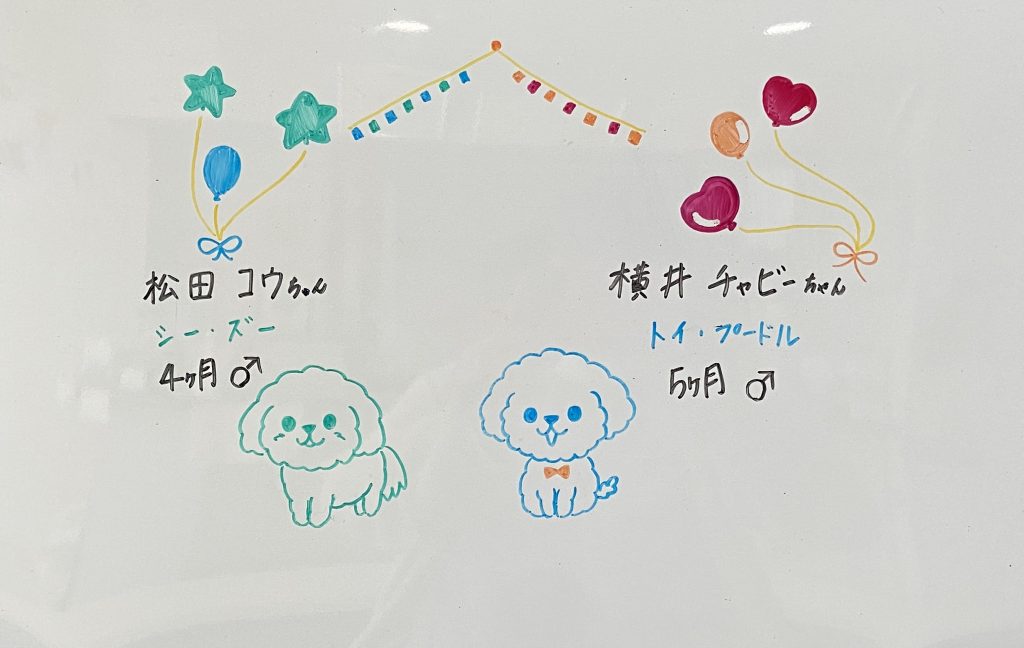 松田 コウちゃん
シー・ズー
4ヶ月 ♂
横井 チャビーちゃん
トイ・プードル
5ヶ月 ♂